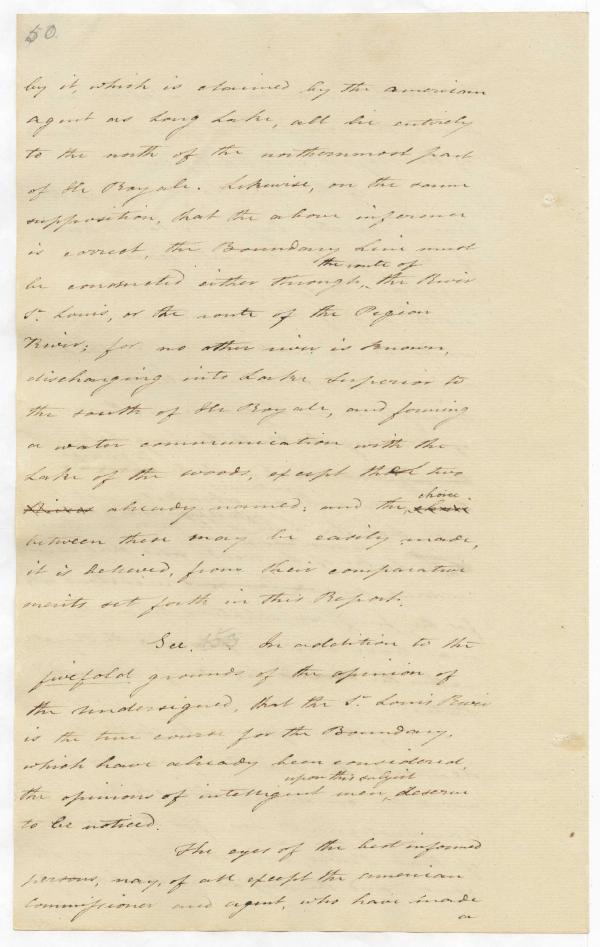 50.
by it, which is claimed by the American
agent as Long Lake, all lie entirely
to the north of the northernmost part
of Ile Royale. Likewise, on the same
supposition, that the above inference
is correct, the Boundary Line must
the route of
be constructed either through, the River
St. Louis, or the route of the Pigion
River; for no other river is known,
discharging into Lake Superior to
the south of Ile Royale, and forming
a water communication with the
Lake of the woods, except the two
Rivers already named; and the
choice
between these may be easily made,
it is believed, from their comparative
merits set forth in this Report.
Sec. In addition to the
fivefold grounds of the opinion of
the undersigned, that the St. Louis River
is the true course for the Boundary,
which have already been considered,
upon this subject
the opinions of intelligent men, deserve
to be noticed.
The eyes of the best informed
persons, nay, of all except the American
Commissioner and agent, who have made
a